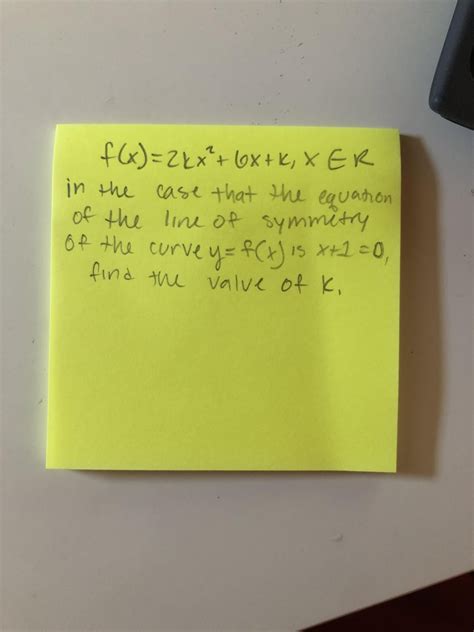 f(x)=2kx²+6x+k, x ∈ R
in the case that the equation
of the line of symmetry
of the curve y=f(x) is x+1=0,
find the value of k.